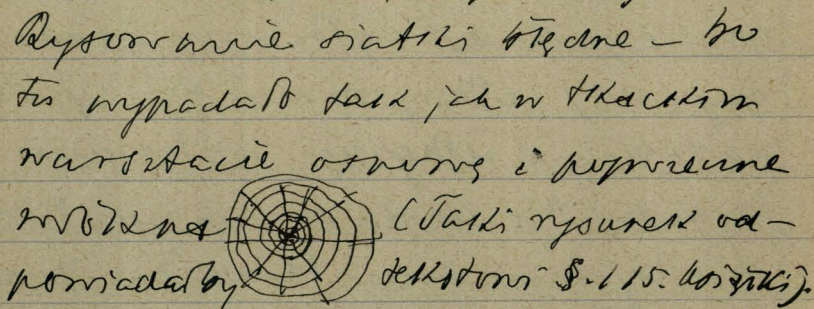 Rysowanie siatki błędne – bo
tu wypadało tak jak w tkackim
warsztacie osnowę i poprzeczne
włókna (Taki rysunek od-
powiadałby tekstowi §. 115. książki).